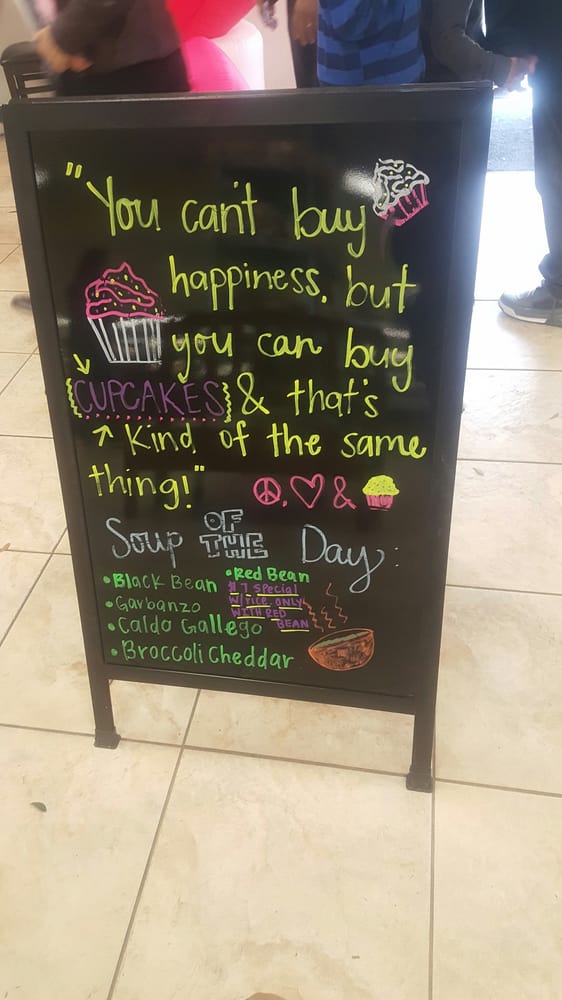 "You can't buy
happiness, but
you can buy
CUPCAKES & that's
kind of the same
thing!" , &
Soup OF THE Day:
• Black Bean
• Garbanzo
• Caldo Gallego
• Broccoli Cheddar
• Red Bean
$7 Special
w/rice ONLY
WITH RED
BEAN